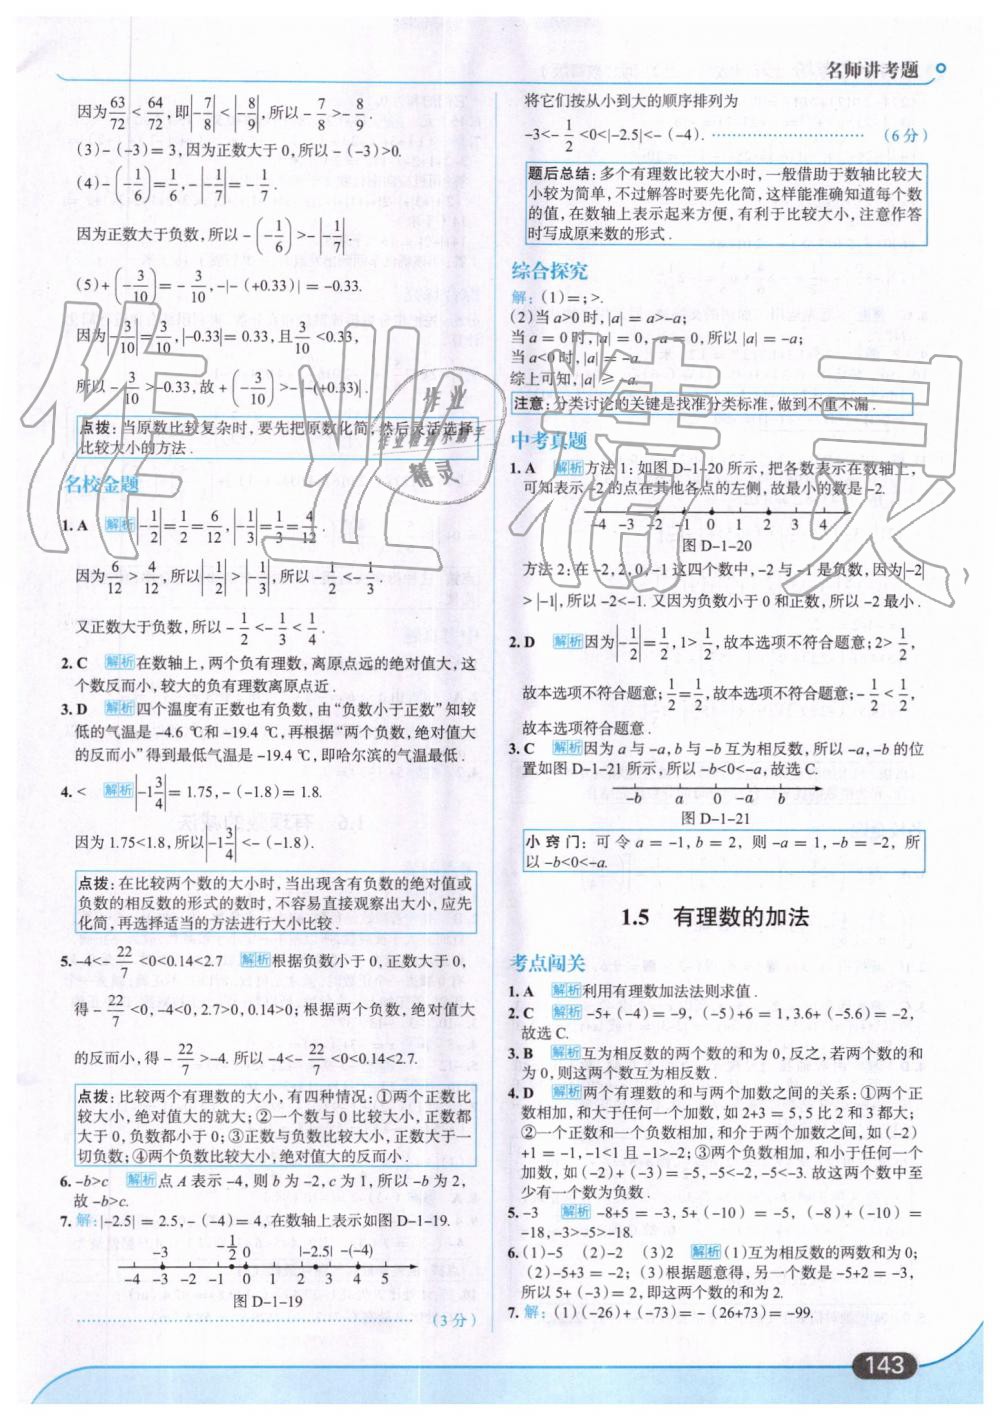 名师讲考题
因为63/72<64/72,即|-7/8|<|-8/9|,所以-7/8>-8/9.
(3)-(-3)=3,因为正数大于0,所以-(-3)>0.
(4)-(-1/6)=1/6,-|-1/7|=-1/7.
因为正数大于负数,所以-(-1/6)>-|-1/7|
(5)+(-3/10)=-3/10,-|-(+0.33)|=-0.33.
因为|-3/10|=3/10,|-0.33|=0.33,且3/10<0.33,
所以-3/10>-0.33,故+(-3/10)>-|-(+0.33)|.
点拨:当原数比较复杂时,要先把原数化简,然后灵活选择
比较大小的方法.
名校金题
1. A 解析|-1/2|=1/2=6/12,|-1/3|=1/3=4/12.
因为6/12>4/12,所以|-1/2|>|-1/3|,所以-1/2<-1/3
又正数大于负数,所以-1/2<-1/3<1/4.
2. C 解析在数轴上,两个负有理数,离原点远的绝对值大,这
个数反而小,较大的负有理数离原点近.
3. D 解析四个温度有正数也有负数,由“负数小于正数”知较
低的气温是-4.6 ℃和-19.4 ℃,再根据“两个负数,绝对值大
的反而小”得到最低气温是-19.4 ℃,即哈尔滨的气温最低.
4. < 解析|-1 3/4|=1.75,-(-1.8)=1.8.
因为1.75<1.8,所以|-1 3/4|<-(-1.8).
点拨:在比较两个数的大小时,当出现含有负数的绝对值或
负数的相反数的形式的数时,不容易直接观察出大小,应先
化简,再选择适当的方法进行大小比较.
5. -4<-22/7<0<0.14<2.7 解析根据负数小于0,正数大于0,
得-22/7<0,-4<0,2.7>0,0.14>0;根据两个负数,绝对值大
的反而小,得-22/7>-4.所以-4<-22/7<0<0.14<2.7.
点拨:比较两个有理数的大小,有四种情况:①两个正数比
较大小,绝对值大的就大;②一个数与0比较大小,正数都
大于0,负数都小于0;③正数与负数比较大小,正数大于一
切负数;④两个负数比较大小,绝对值大的反而小.
6. -b>c 解析点A表示-4,则b为-2,c为1,所以-b为2,
故-b>c.
7. 解:|-2.5|=2.5,-(-4)=4,在数轴上表示如图D-1-19.
-3 -1/2 0 |-2.5| -(-4)
-4 -3 -2 -1 0 1 2 3 4 5
图D-1-19
(3分)
将它们按从小到大的顺序排列为
-3<-1/2<0<|-2.5|<-(-4). (6分)
题后总结:多个有理数比较大小时,一般借助于数轴比较大
小较为简单,不过解答时要先化简,这样能准确知道每个数
的值,在数轴上表示起来方便,有利于比较大小,注意作答
时写成原来数的形式.
综合探究
解:(1)=;>.
(2)当a>0时,|a|=a>-a;
当a=0时,|a|=0,-a=0,所以|a|=-a;
当a<0时,|a|=-a.
综上可知,|a|≥-a.
注意:分类讨论的关键是找准分类标准,做到不重不漏.
中考真题
1. A 解析方法1:如图D-1-20所示,把各数表示在数轴上,
可知表示-2的点在其他各点的左侧,故最小的数是-2.
-4 -3 -2 -1 0 1 2 3 4
图D-1-20
方法2:在-2,2,0,-1这四个数中,-2与-1是负数,因为|-2|
>|-1|,所以-2<-1.又因为负数小于0和正数,所以-2最小.
2. D 解析因为|-1/2|=1/2,1>1/2,故本选项不符合题意;2>1/2,
故本选项不符合题意;1/2=1/2,故本选项不符合题意;-1/2<1/2,
故本选项符合题意.
3. C 解析因为a与-a,b与-b互为相反数,所以-a,-b的位
置如图D-1-21所示,所以-b<0<-a,故选C.
-b a 0 -a b
图D-1-21
小窍门:可令a=-1,b=2,则-a=1,-b=-2,所
以-b<0<-a.
1.5 有理数的加法
考点闯关
1. A 解析利用有理数加法法则求值.
2. C 解析-5+(-4)=-9,(-5)+6=1,3.6+(-5.6)=-2,
故选C.
3. B 解析互为相反数的两个数的和为0,反之,若两个数的和
为0,则这两个数互为相反数.
4. D 解析两个有理数的和与两个加数之间的关系:①两个正
数相加,和大于任何一个加数,如2+3=5,5比2和3都大;
②一个正数和一个负数相加,和介于两个加数之间,如(-2)
+1=-1,-1<1且-1>-2;③两个负数相加,和小于任何一个
加数,如(-2)+(-3)=-5,-5<-2,-5<-3.故这两个数中至
少有一个数为负数.
5. -3 解析-8+5=-3,5+(-10)=-5,(-8)+(-10)=
-18,-3>-5>-18.
6. (1)-5 (2)-2 (3)2 解析(1)互为相反数的两数和为0;
(2)-5+3=-2;(3)根据题意得,另一个数是-5+2=-3,
所以5+(-3)=2,即这两个数的和为2.
7. 解:(1)(-26)+(-73)=-(26+73)=-99.
143
作业精灵